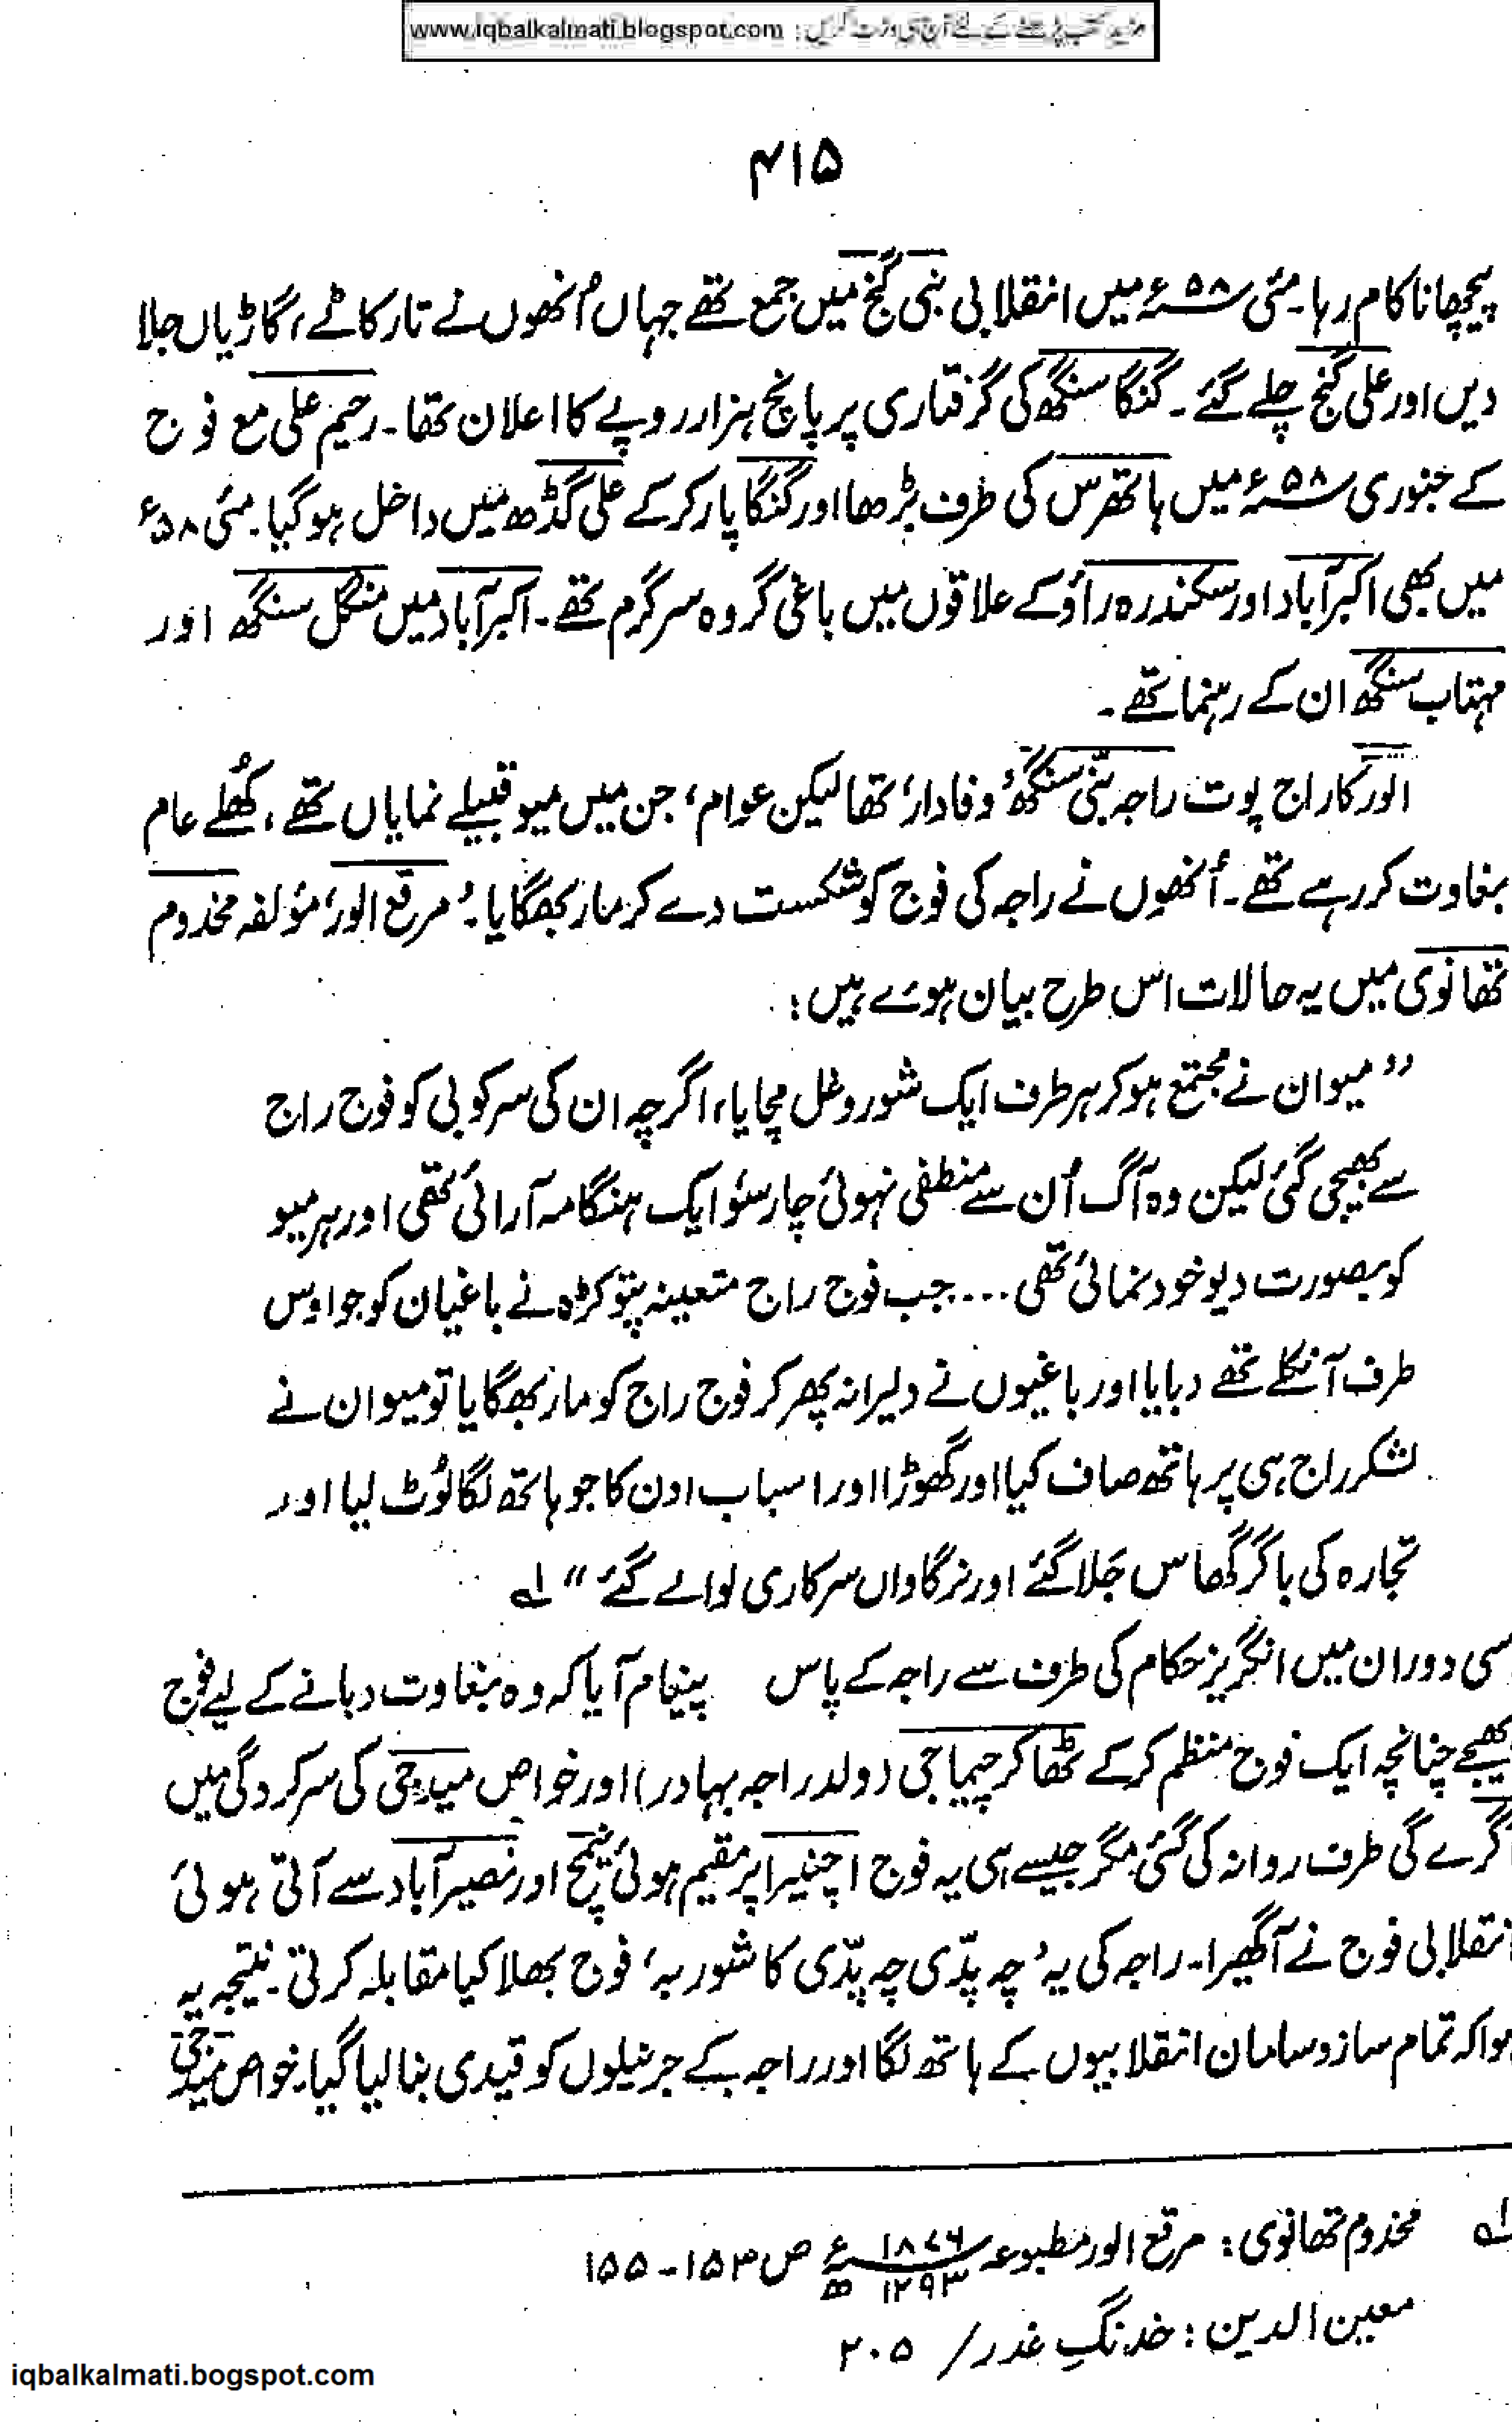 مزید کتب پڑھنے کے لئے آج ہی وزٹ کریں : www.iqbalkalmati.blogspot.com
۴۱۵
پیچھا ناکام رہا۔ مئی ۵۸ء میں انقلابی نبی گنج میں جمع تھے جہاں اُنھوں نے تار کاٹے، گاڑیاں جلا
دیں اور علی گنج چلے گئے۔ گنگا سنگھ کی گرفتاری پر پانچ ہزار روپے کا اعلان تھا۔ رحیم علی مع فوج
کے جنوری ۵۸ء میں ہاتھرس کی طرف بڑھا اور گنگا پار کر کے علی گڈھ میں داخل ہو گیا۔ مئی ۵۸ء
میں بھی اکبرآباد اور سکندرہ راؤ کے علاقوں میں باغی گروہ سرگرم تھے۔ اکبرآباد میں منگل سنگھ اور
مہتاب سنگھ ان کے رہنما تھے۔
الور کا راج پوت راجہ بنّی سنگھ ’وفادار‘ تھا لیکن عوام، جن میں میو قبیلے نمایاں تھے، کھُلے عام
بغاوت کر رہے تھے۔ اُنھوں نے راجہ کی فوج کو شکست دے کر مار بھگایا۔ ’مرقع الور‘ مؤلفہ مخدوم
تھانوی میں یہ حالات اس طرح بیان ہوئے ہیں:
”میوان نے مجتمع ہو کر ہر طرف ایک شور و غل مچایا، اگرچہ ان کی سرکوبی کو فوج راج
سے بھیجی گئی لیکن وہ آگ اُن سے منطفی نہوئی چار سُو ایک ہنگامہ آرائی تھی اور ہر میو
کو بصورت دیو خود نمائی تھی ... جب فوج راج متعینہ پتوکڑہ نے باغیان کو جو اوس
طرف آنکلے تھے دبایا اور باغیوں نے دلیرانہ پھر کر فوج راج کو مار بھگایا تو میوان نے
لشکر راج ہی پر ہاتھ صاف کیا اور گھوڑا اور اسباب اون کا جو ہاتھ لگا لُوٹ لیا اور
تجارہ کی باگر گھاس جَلا گئے اور نرگاواں سرکاری لوا لے گئے“ ؎۱
اسی دوران میں انگریز حکام کی طرف سے راجہ کے پاس پیغام آیا کہ وہ بغاوت دبانے کے لیے فوج
بھیجے چنانچہ ایک فوج منظم کر کے ٹھاکر چیماجی (ولد راجہ بہادر) اور خواص میدجی کی سرکردگی میں
آگرے کی طرف روانہ کی گئی مگر جیسے ہی یہ فوج اچنیرا پر مقیم ہوئی نیمچ اور نصیرآباد سے آتی ہوئی
انقلابی فوج نے آگھیرا۔ راجہ کی یہ ’چہ پدّی چہ پدّی کا شوربہ‘ فوج بھلا کیا مقابلہ کرتی۔ نتیجہ یہ
ہوا کہ تمام ساز و سامان انقلابیوں کے ہاتھ لگا اور راجہ کے جرنیلوں کو قیدی بنا لیا گیا۔ خواص میدجی
؎۱ مخدوم تھانوی: مرقع الور مطبوعہ ۱۸۷۶ء / ۱۲۹۳ھ ص ۱۵۳ - ۱۵۵
معین الدین: خدنگِ غدر / ۲۰۵
iqbalkalmati.bogspot.com